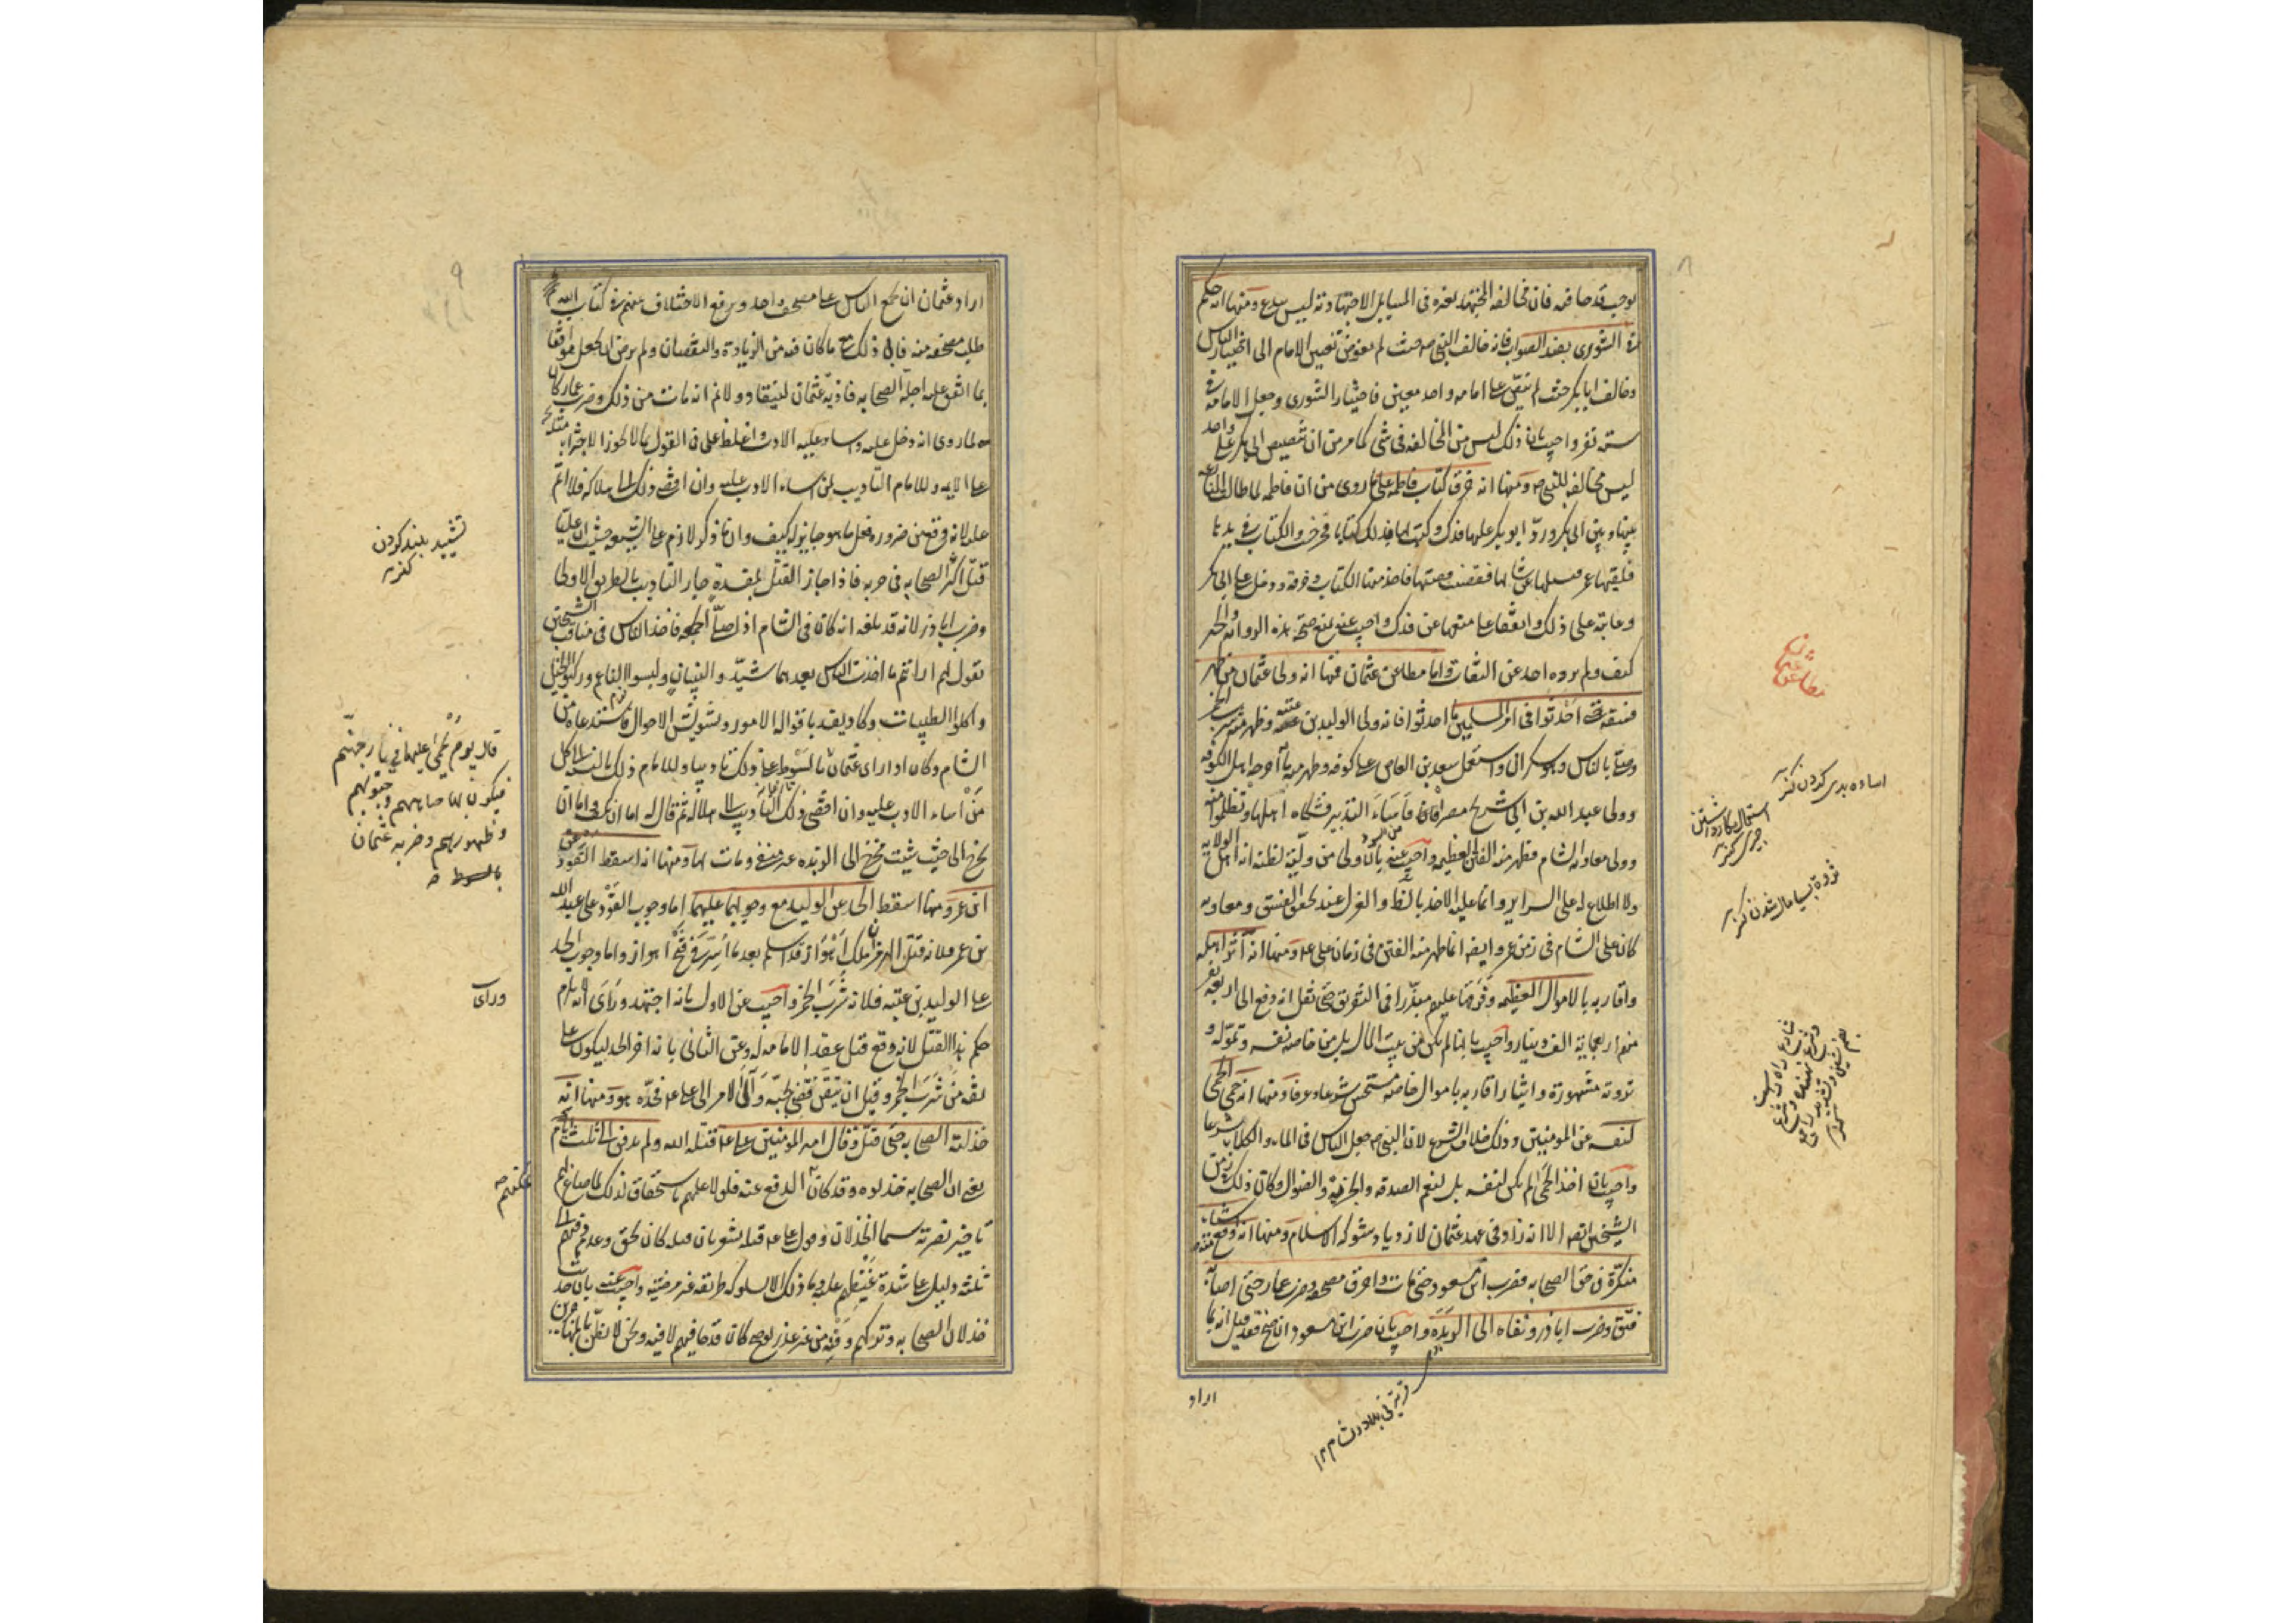 يوجب قدحا فيه فان مخالفة المجتهد لغيره فى المسايل الاجتهادية ليس ببدع ومنها انه حكم
فى الشورى بضد الصواب فانه خالف النبى صـ حيث لم يفوض تعيين الامام الى اختيار الناس
وخالف ابابكر حيث لم ينص على امامه واحد معين فاختار الشورى وجعل الامامة فى
ستة نفر واجيب بان ذلك ليس من المخالفه فى شى كما مر من ان تنصيص ابى بكر على واحد
ليس مخالفه للنبى صـ ومنها انه خرق كتاب فاطمه على ما روى من ان فاطمه لما طالت المنازعة
بينها وبين ابى بكر ورد ابو بكر عليها فدك وكتب لها بذلك كتابا فخرجت والكتاب فى يدها
فلقيها عمر فسالها عن شانها فقصت قصتها فاخذ منها الكتاب وخرقه ودخل على ابى بكر
وعاتبه على ذلك واتفقا على منعها عن فدك واجيب عنه بمنع صحة هذه الرواية والخبر
كيف ولم يروه احد عن الثقات واما مطاعن عثمان فمنها انه ولى عثمان من ظهر
فسقه حتى احدثوا فى امر المسلمين ما احدثوا فانه ولى الوليد بن عتبه وظهر منه شرب الخمر
وصلى بالناس وهو سكران واستعمل سعد بن العاص على الكوفه وظهر منه ما اخرجه اهل الكوفه
وولى عبد الله بن ابى شرح مصر فاساء التدبير فشكاه اهلها وتظلموا منه
وولى معاويه الشام فظهر منه الفتن العظيمه واجيب عنه بانه انما ولى من ولّيه لظنه انه اهل الولاية
ولا اطلاع له على السراير وانما عليه الاخذ بالظاهر والعزل عند تحقق الفسق ومعاويه
كان على الشام فى زمن عمر وايضا انما ظهر منه الفتن فى زمان على عـ ومنها انه آثر اهله
واقاربه بالاموال العظيمه وفرضها عليهم مبذرا فى التفريق حتى نقل انه دفع الى اربعة نفر
منهم اربعماية الف دينار واجيب بانها لم تكن من بيت المال بل من خاصة نفسه وتموّله و
ثروته مشهورة وايثار اقاربه باموال خاصه مستحسن شرعا وعرفا ومنها انه حمى الحمى
لنفسه عن المومنين وذلك خلاف الشرع لان النبى صـ جعل الناس فى الماء والكلاء شرعا
واجيب بان اخذ الحمى لم يكن لنفسه بل لنعم الصدقه والجزية والضوال وكان ذلك زمن
الشيخين ايضا الا انه زاد فى عهد عثمان لازدياد شوكة الاسلام ومنها انه وقع منه اشياء
منكرة فى حق الصحابه فضرب ابن مسعود حتى مات واحرق مصحفه وضرب عمار حتى اصابه
فتق وضرب اباذر ونفاه الى الربذه واجيب بان ضرب ابن مسعود ان صح فقد قيل انه لما
اراد
قرية فى بلاد شام ١٢
مطاعن عثمان
اساءه بدى كردن كنز
ثروة بسيار مال شدن كنز
اراد عثمان ان يجمع الناس على مصحف واحد ويرفع الاختلاف عنهم فى كتاب الله
طلب مصحفه منه فابى ذلك مع ما كان فيه من الزيادة والنقصان ولم يرض ان يجعل موافقا
بما اتفق عليه اجلة الصحابه فادّبه عثمان لينقاد ولا نم انه مات من ذلك وضرب عمار كان
لما روى انه دخل عليه واساء عليه الادب واغلظ على فى القول بما لا يجوز الاجتراء بمثله
على الايمه وللامام التاديب لمن اساء الادب عليه وان افضى ذلك الى هلاكه فلا اثم
عليه لانه وقع من ضروره فعل ما هو جايز له كيف وان ما ذكر لازم على الشيعه حيث ان عليا
قتل اكثر الصحابه فى حربه فاذا جاز القتل لمفسدة جاز التاديب بالطريق الاولى
وضرب اباذر لانه قد بلغه انه كان فى الشام اذا صلى الجمعه فاخذ الناس فى مناقب الشيخين
يقول لهم ارايتم ما احدث الناس بعدهما شيّدوا البنيان ولبسوا الناعم وركبوا الخيل
واكلوا الطيبات وكاد يفسد باقواله الامور ويشوش الاحوال فاستدعاه من
الشام وكان اذا راى عثمان قال بالسوط على ذلك تاديبا وللامام ذلك بالنسبة الى كل
من اساء الادب عليه وان افضى ذلك التاديب الى هلاك ثم قال له اما ان تكف واما ان
تخرج الى حيث شئت فخرج الى الربذه غير منفى ومات بها ومنها انه اسقط القود عن
ابن عمر ومنها اسقط الحد عن الوليد مع وجوبهما عليهما اما وجوب القود على عبد الله
بن عمر فلانه قتل الهرمزان ملك اهواز وقد اسلم بعد ما اسر فى فتح اهواز واما وجوب الحد
على الوليد بن عتبه فلانه شرب الخمر واجيب عن الاول بانه اجتهد ورأى انه لا يلزم
حكم هذا القتل لانه وقع قبل عقد الامامه له وعن الثانى بانه اخر الحد ليكون على
ثقة من شرب الخمر وقبل ان يتيقن قضى نحبه وآل الامر الى على عـ فحدّه هو ومنها انه
خذلته الصحابه حتى قتل وقال امير المومنين على عـ قتله الله ولم يدفن الى ثلث ايام
يعنى ان الصحابه خذلوه وقد كان الدفع عنه فلولا علمهم باستحقاقه لذلك لما صاغ لهم
تاخير نصرته سيما الخذلان وقول على عـ قتله الله يشعر بان قتله كان بحق وعدم دفنهم الى
ثلثة دليل على شدة غيظهم عليه وما ذلك الا لسلوكه طريقه غير مرضيه واجيب عنه بان حديث
خذلان الصحابه وتركهم دفنه من غير عذر لو صح كان قدحا فيهم لا فيه ونحن لا نظن بالمهاجرين
تشييد بلند كردن كنز
قال يوم يحمى عليها فى نار جهنم
فيكوى بها جباههم وجنوبهم
وظهورهم وضربه عثمان
بالسوط صـ
وراى